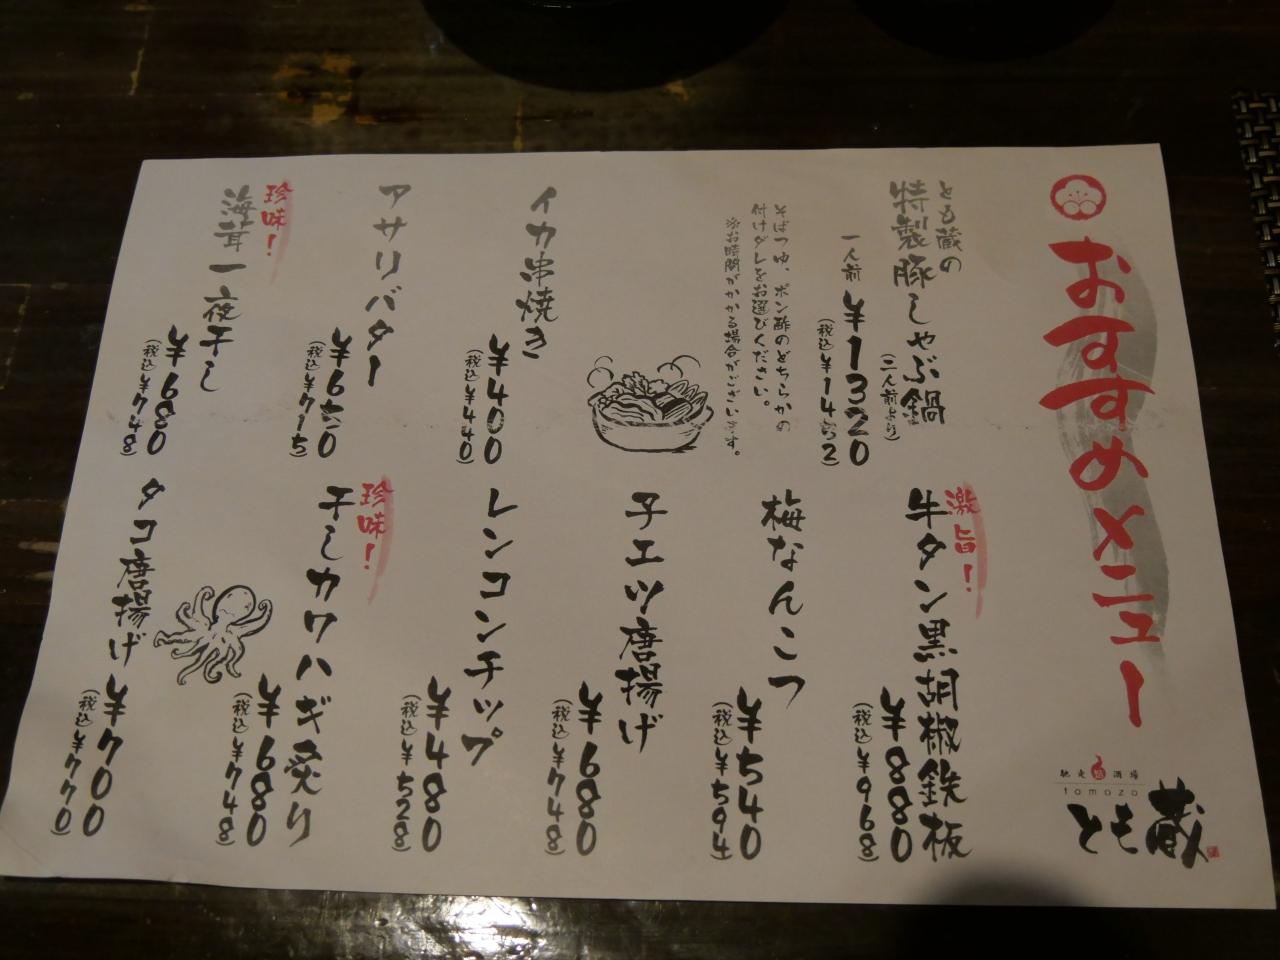 おすすめメニュー
とも蔵の
特製豚しゃぶ鍋
(二人前より)
一人前 ¥1320
(税込¥1452)
そばつゆ、ポン酢のどちらかの
付けダレをお選びください。
※お時間がかかる場合がございます。
イカ串焼き
¥400
(税込¥440)
アサリバター
¥650
(税込¥715)
珍味!
海茸一夜干し
¥680
(税込¥748)
激旨!
牛タン黒胡椒鉄板
¥880
(税込¥968)
梅なんこつ
¥540
(税込¥594)
子エツ唐揚げ
¥680
(税込¥748)
レンコンチップ
¥480
(税込¥528)
珍味!
干しカワハギ炙り
¥680
(税込¥748)
タコ唐揚げ
¥700
(税込¥770)
馳走 酒場
tomozo
とも蔵